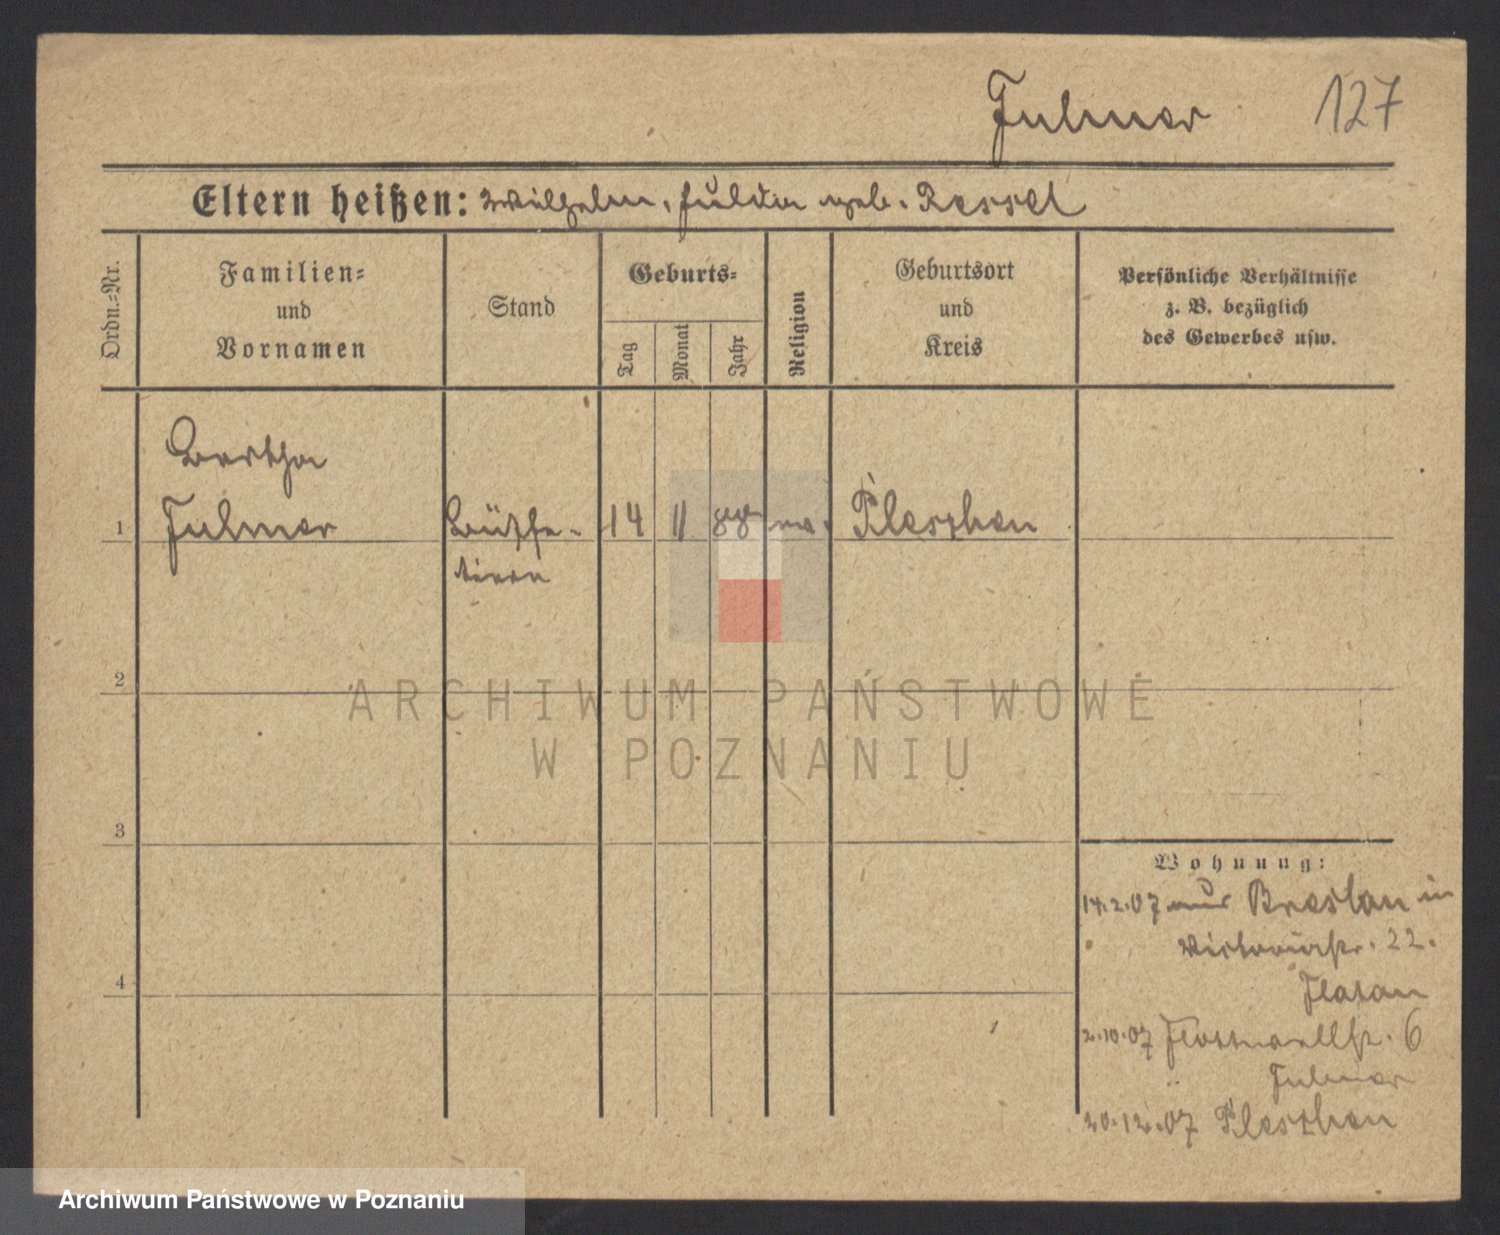 Fulmer 127
Eltern heißen: Wilhelm, Hulda geb. Ressel
Ordn.-Nr.
Familien-
und
Vornamen
Stand
Geburts-
Tag
Monat
Jahr
Religion
Geburtsort
und
Kreis
Persönliche Verhältnisse
z. B. bezüglich
des Gewerbes usw.
Bertha
1 Fulmer Büffe- 14 11 88 ev. Pleschen
tiere
2
3
4
Wohnung:
14.2.07 aus Breslau in
Victoriastr. 22.
2.10.07 6
Fulmer
20.12.07 Pleschen
ARCHIWUM PAŃSTWOWE
W POZNANIU
Archiwum Państwowe w Poznaniu